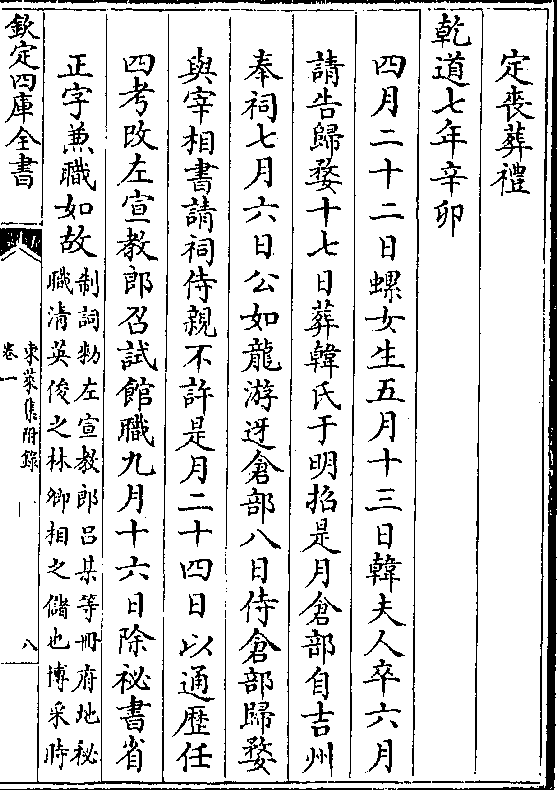 定喪葬禮
乾道七年辛卯
四月二十二日螺女生五月十三日韓夫人卒六月
請告歸婺十七日葬韓氏于明招是月倉部自吉州
奉祠七月六日公如龍游迓倉部八日侍倉部歸婺
與宰相書請祠侍親不許是月二十四日以通歴任
四考改左宣教郎召試館職九月十六日除祕書省
正字兼職如故制詞勑左宣教郎吕某等冊府地秘
職清英俊之林卿相之儲也博采時
欽定四庫全書
東萊集附錄
卷一
八